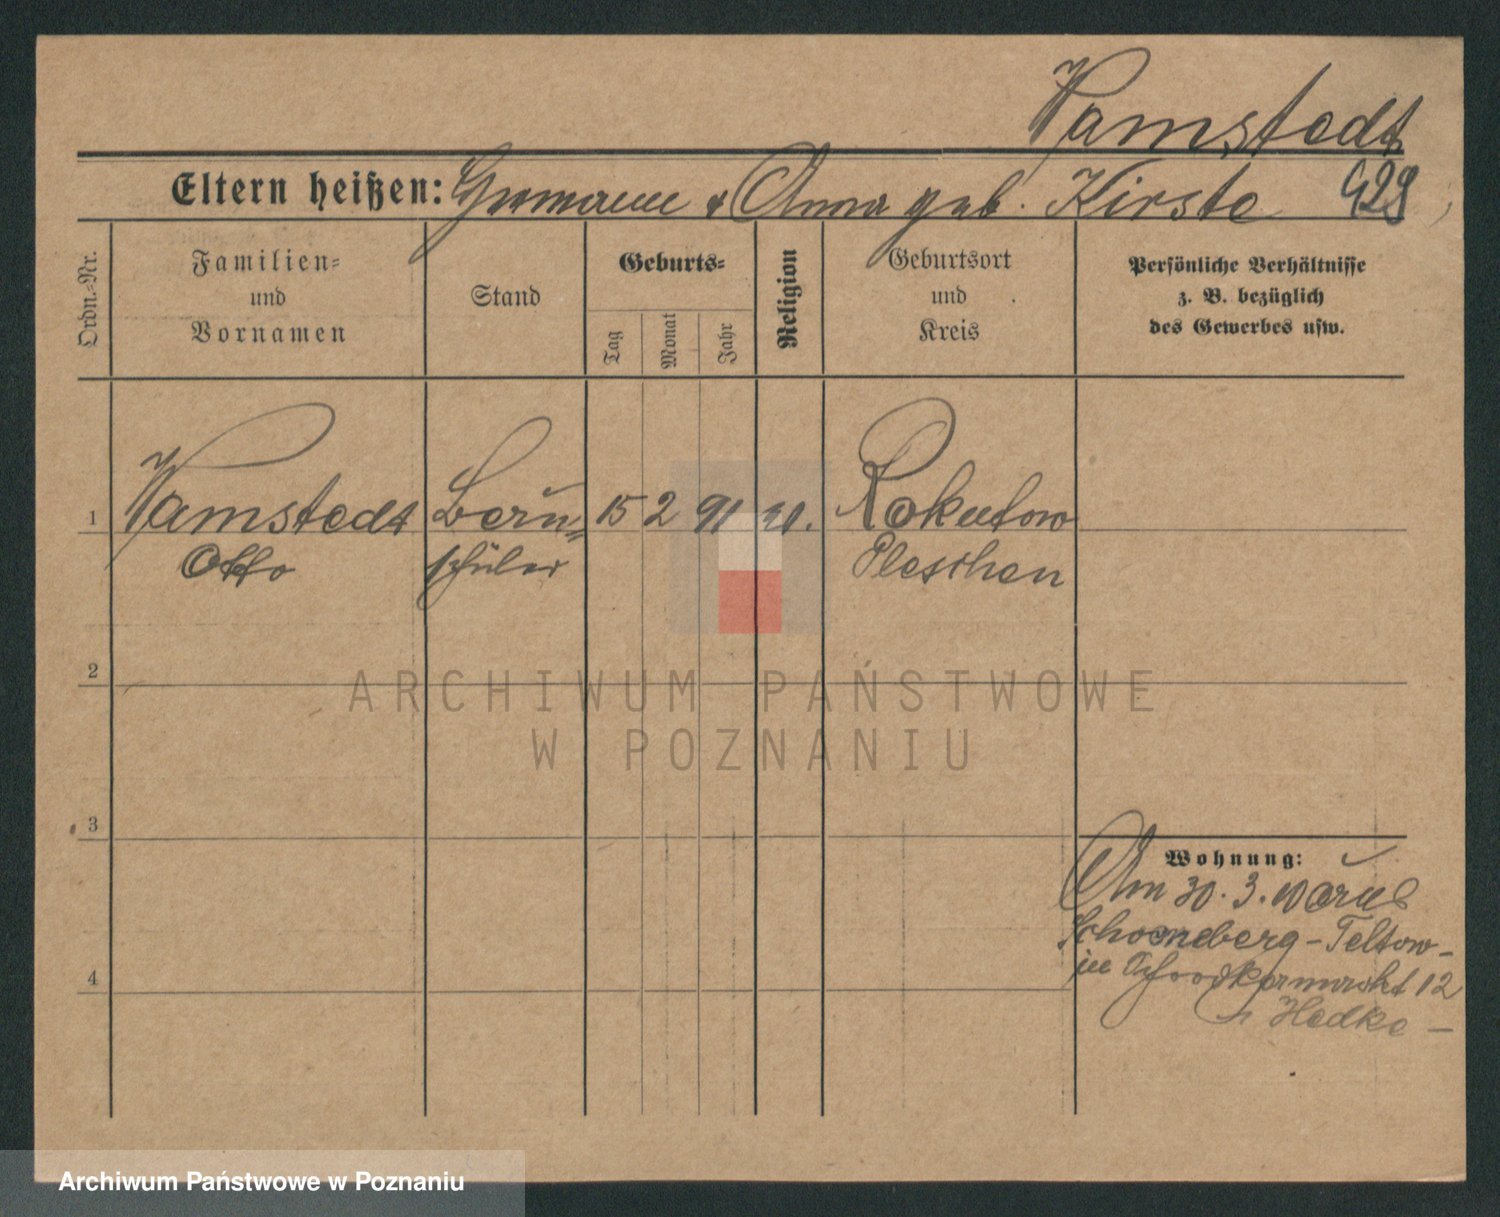 Vamstedt
Eltern heißen: Hermann & Anna geb. Kirste 428
Ordn.-Nr.
Familien-
und
Vornamen
Stand
Geburts-
Tag
Monat
Jahr
Religion
Geburtsort
und
Kreis
Persönliche Verhältnisse
z. B. bezüglich
des Gewerbes usw.
1 Vamstedt 15 2 91 Rokutow
Otto schüler Pleschen
2
3
4
Wohnung:
Am 30. 3. 10
Schoeneberg-Teltow-
12
Hedke
ARCHIWUM PAŃSTWOWE
W POZNANIU
Archiwum Państwowe w Poznaniu